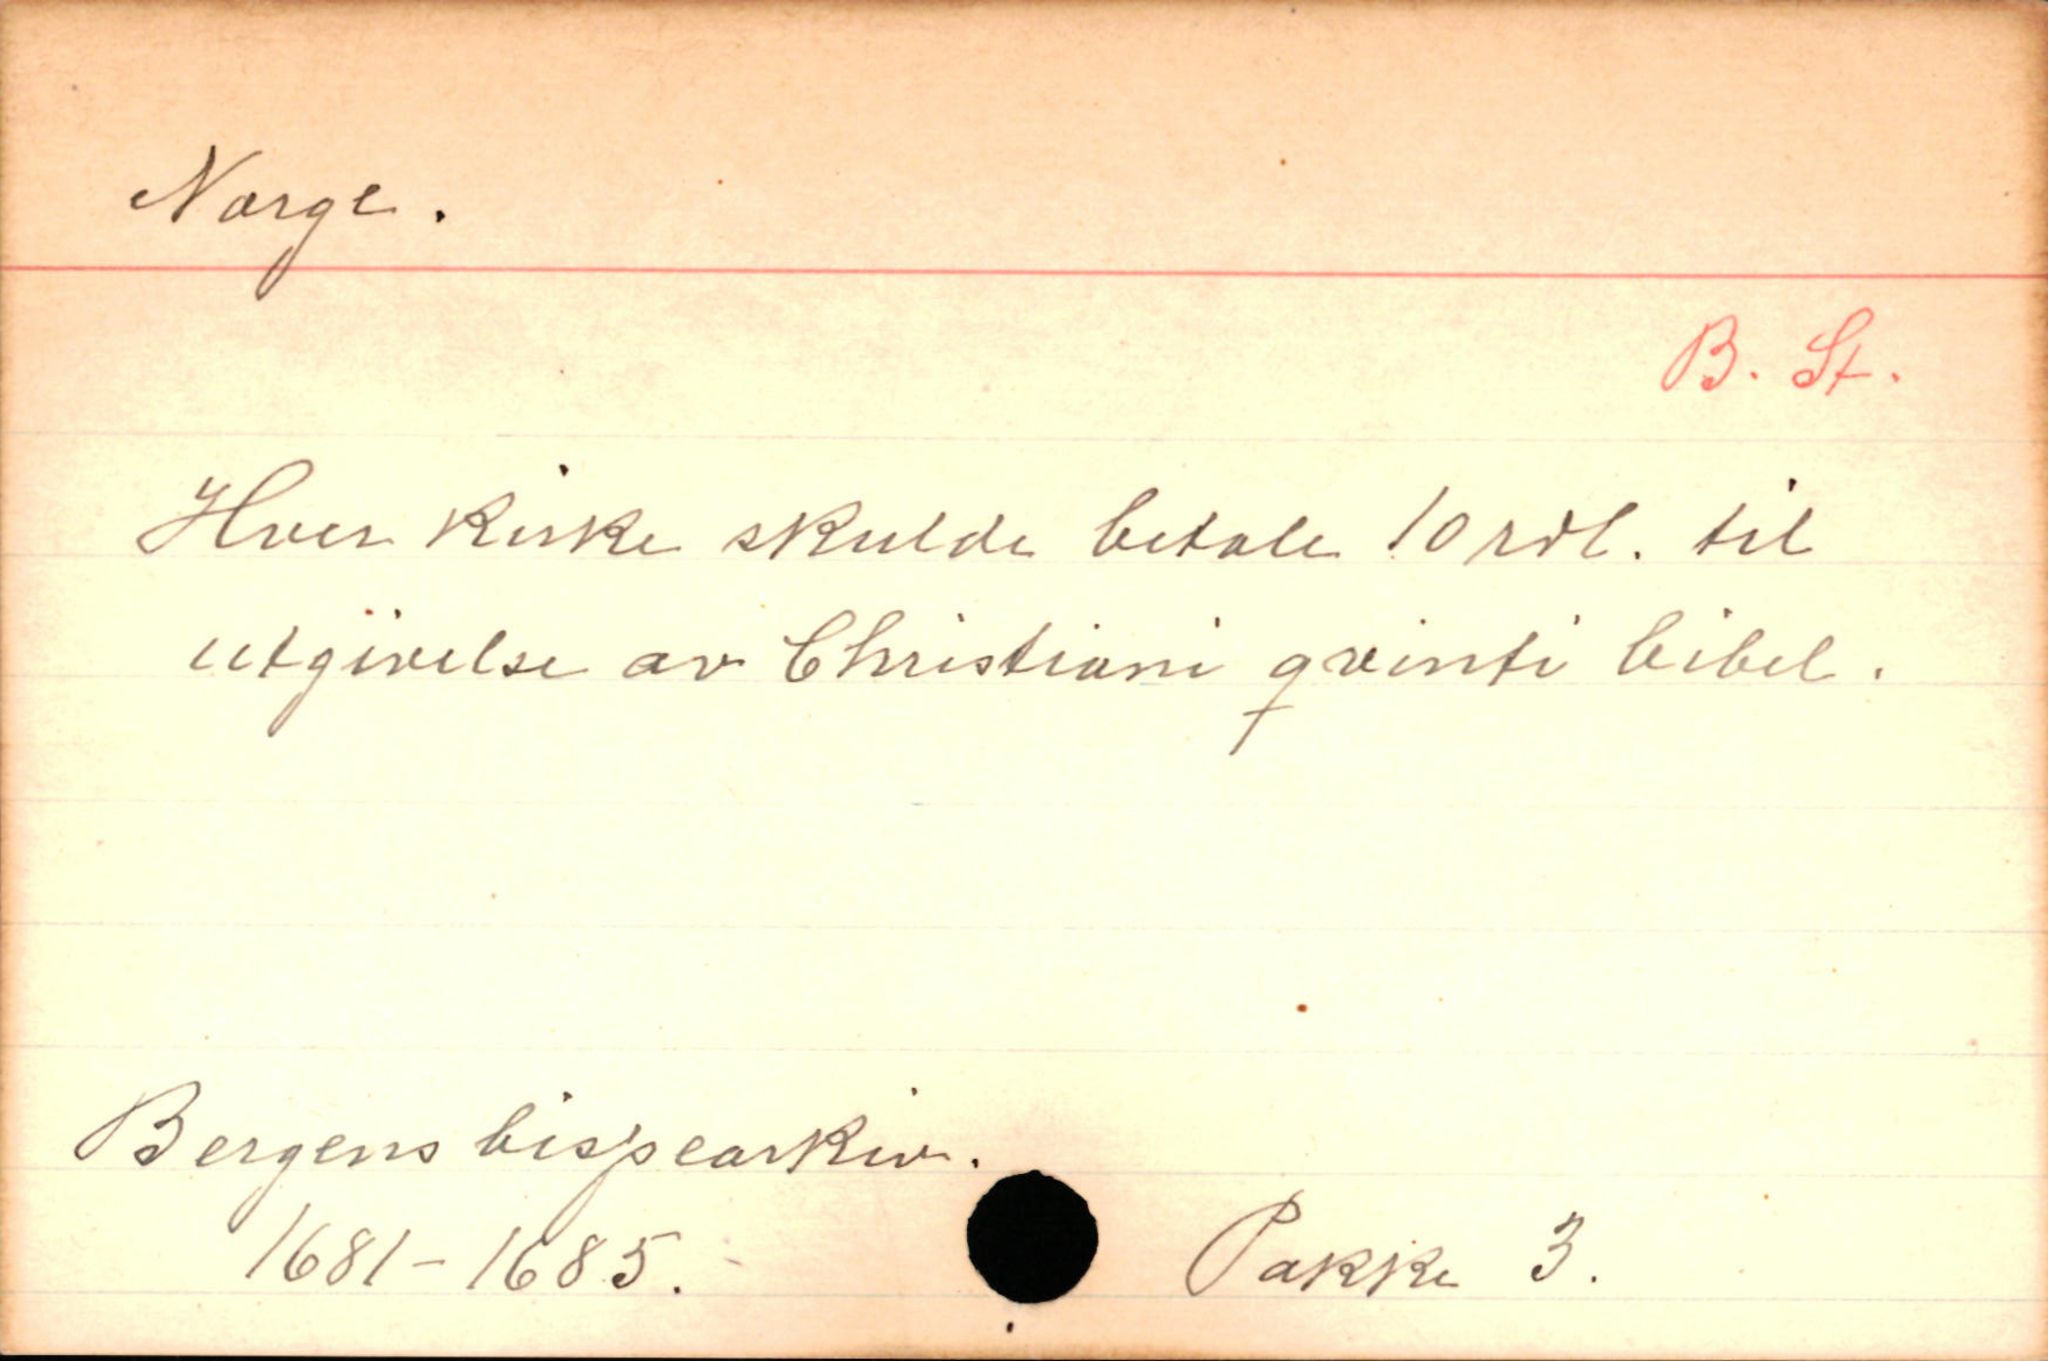 Norge.
B. St.
Hver kirke skulde betale 10 rdl. til
utgivelse av Christiani qvinti bibel.
Bergens bispearkiv.
1681-1685.
Pakke 3.